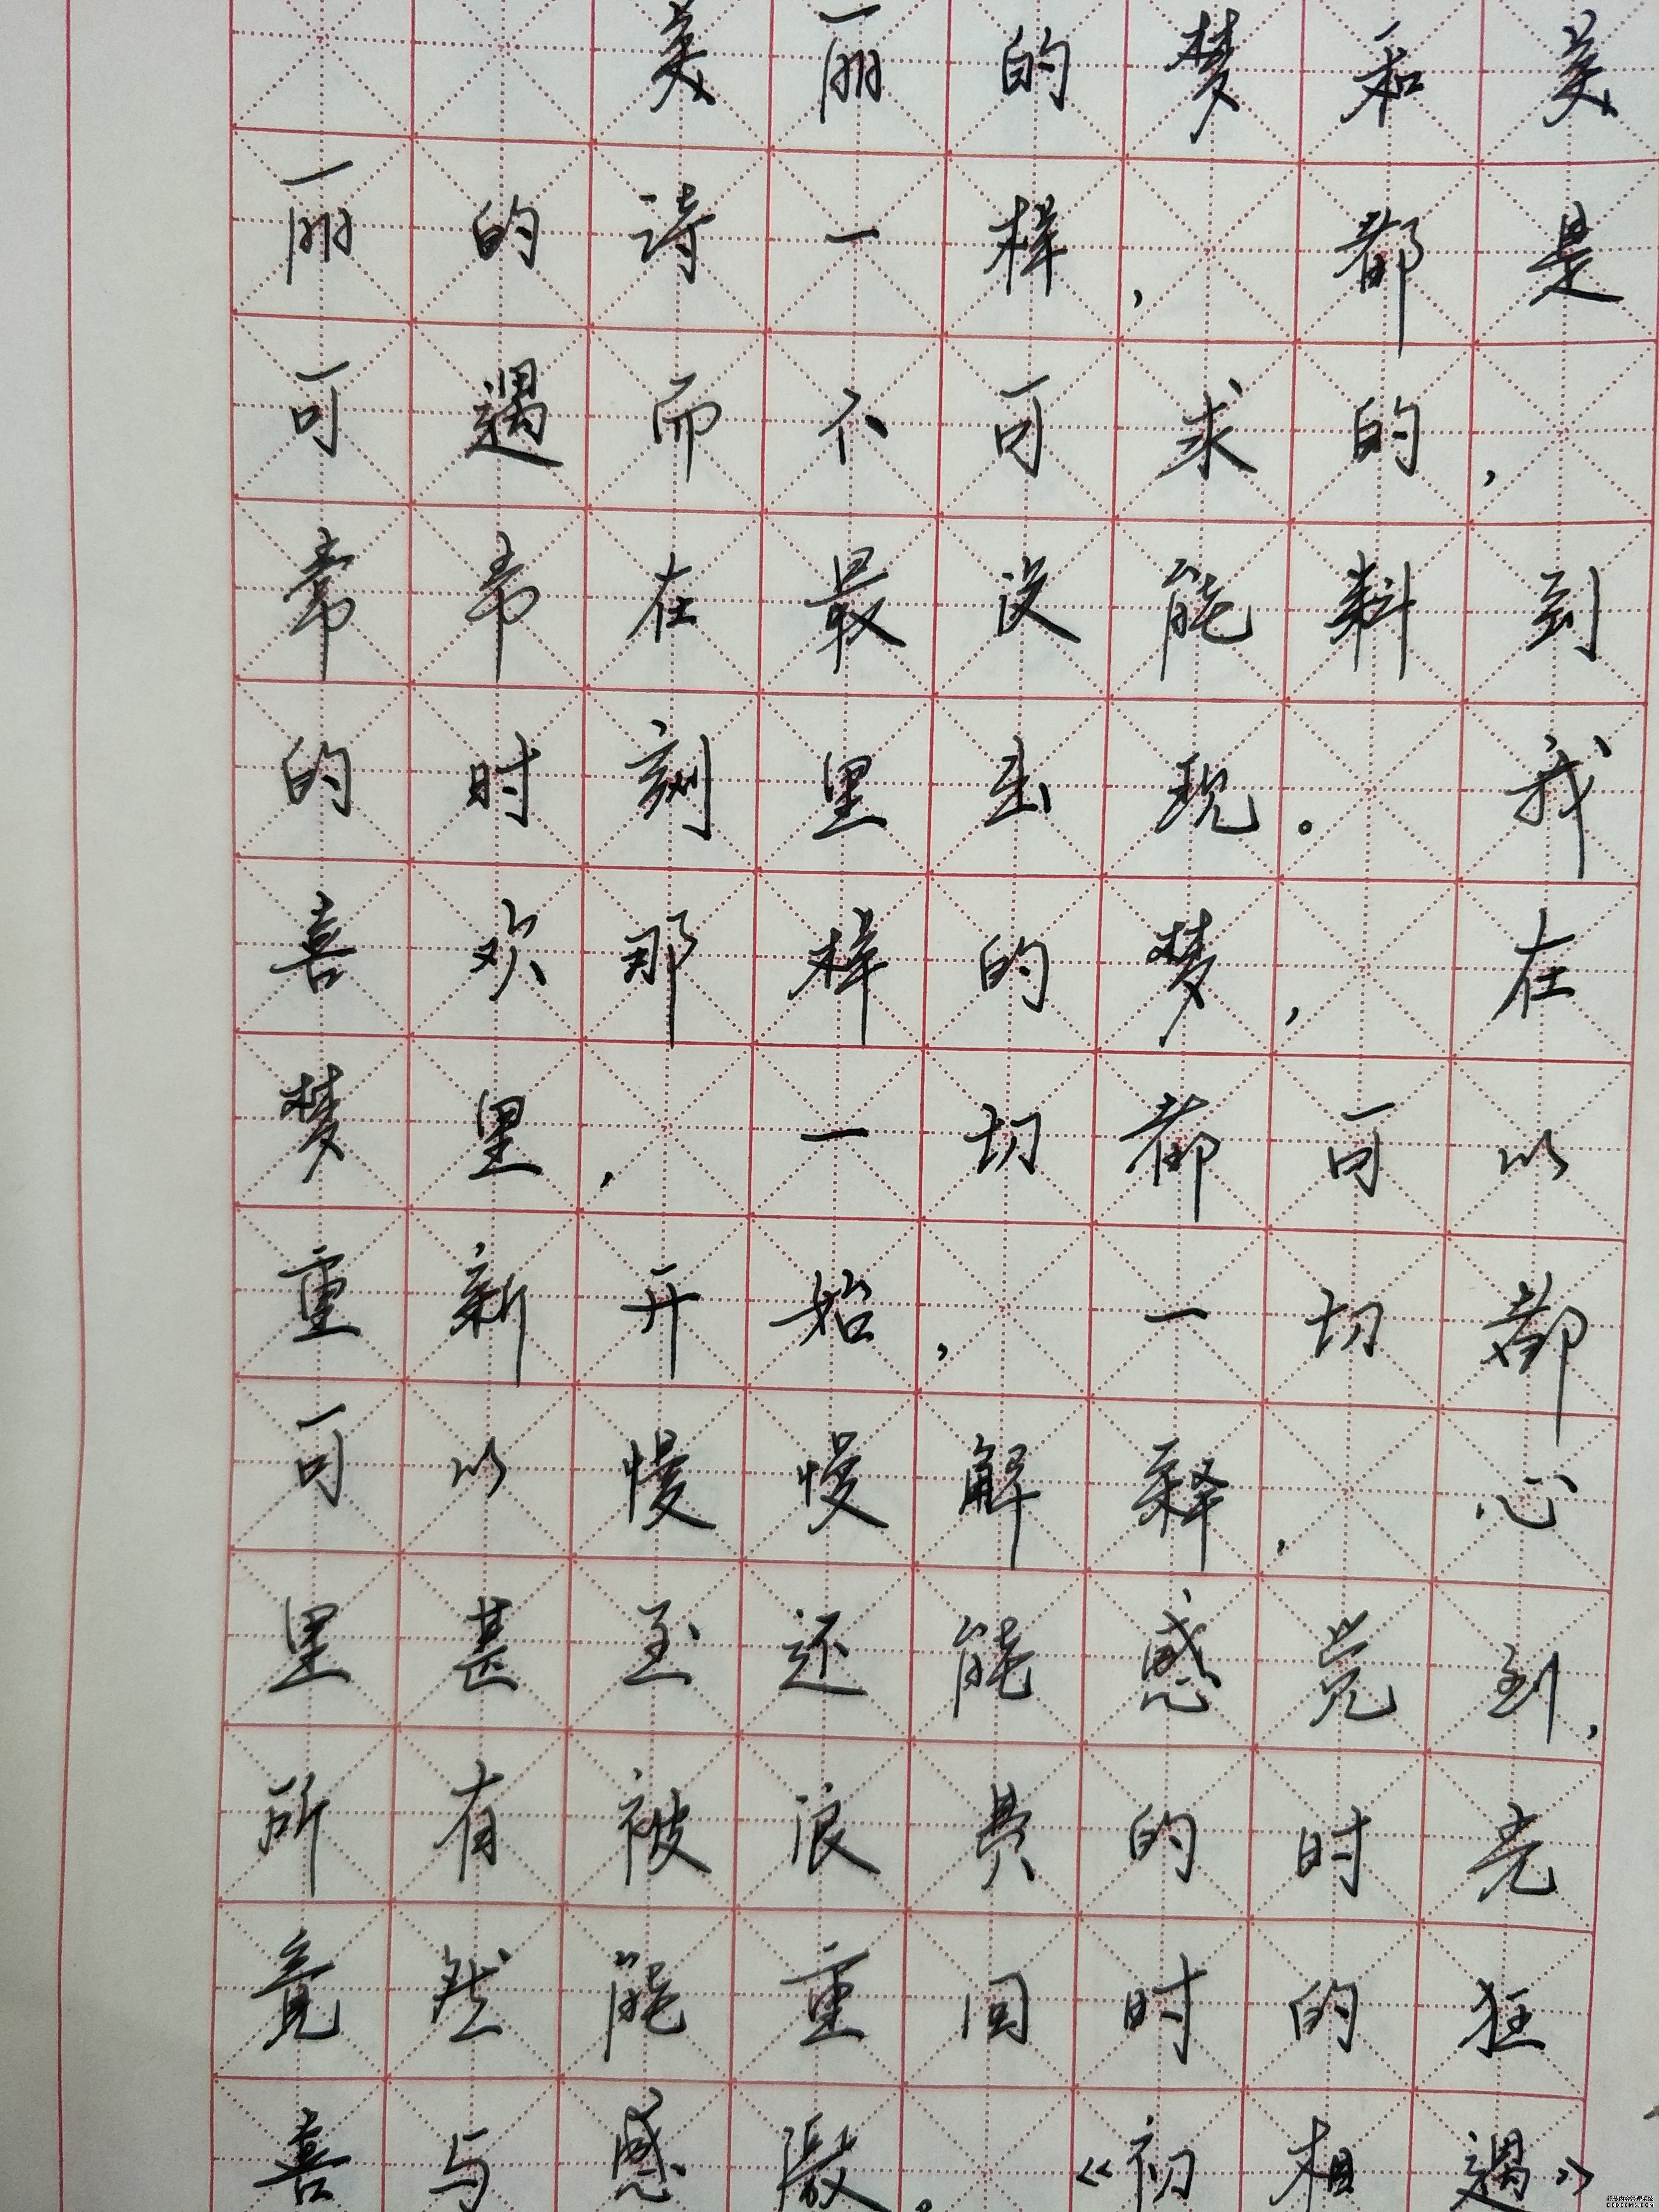 美丽的梦和美
丽的诗一样，都是
可遇而不可求的，
常常在最没能料到
的时刻里出现。我
喜欢那样的梦，在
梦里，一切都可以
重新开始，一切都
可以慢慢解释，心
里甚至还能感觉到，
所有被浪费的时光
竟然能重回时的狂
喜与感激。《初相遇》
织梦内容管理系统
DEDECMS.COM